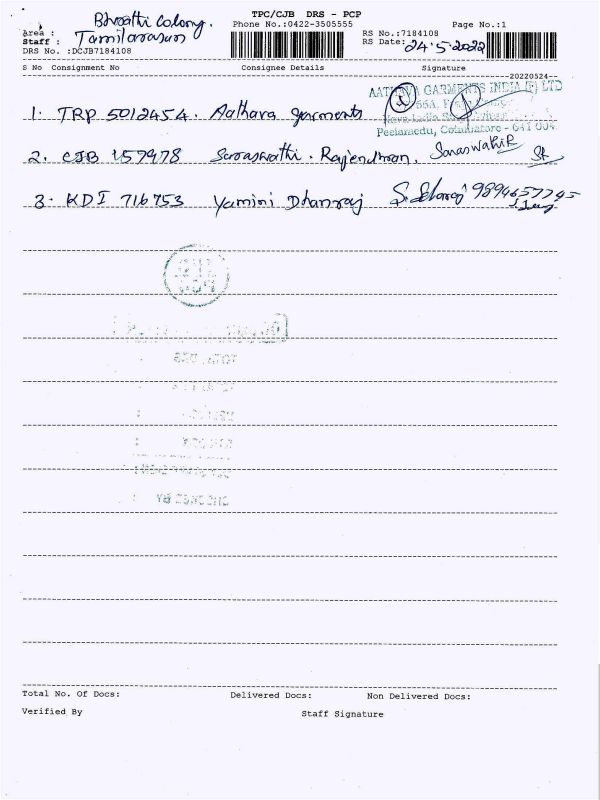 TPC/CJB DRS - PCP
Area : Bharathi Colony.
Phone No.:0422-3505555
Page No.:1
Staff : Tamilarasun
RS No.:7184108
DRS No. :DCJB7184108
RS Date: 24.5-2022
S No Consignment No Consignee Details Signature
--20220524--
AATHAVA GARMENTS INDIA (P) LTD
1. TRP 5012454. Aathava garments
Peelamedu, Coimbatore - 641 004
2. CJB 157978 Saraswathi. Rajendhran, Saraswathi R
3. KDI 716753 Yamini Dhanraj 9894657745
Total No. Of Docs: Delivered Docs: Non Delivered Docs:
Verified By Staff Signature